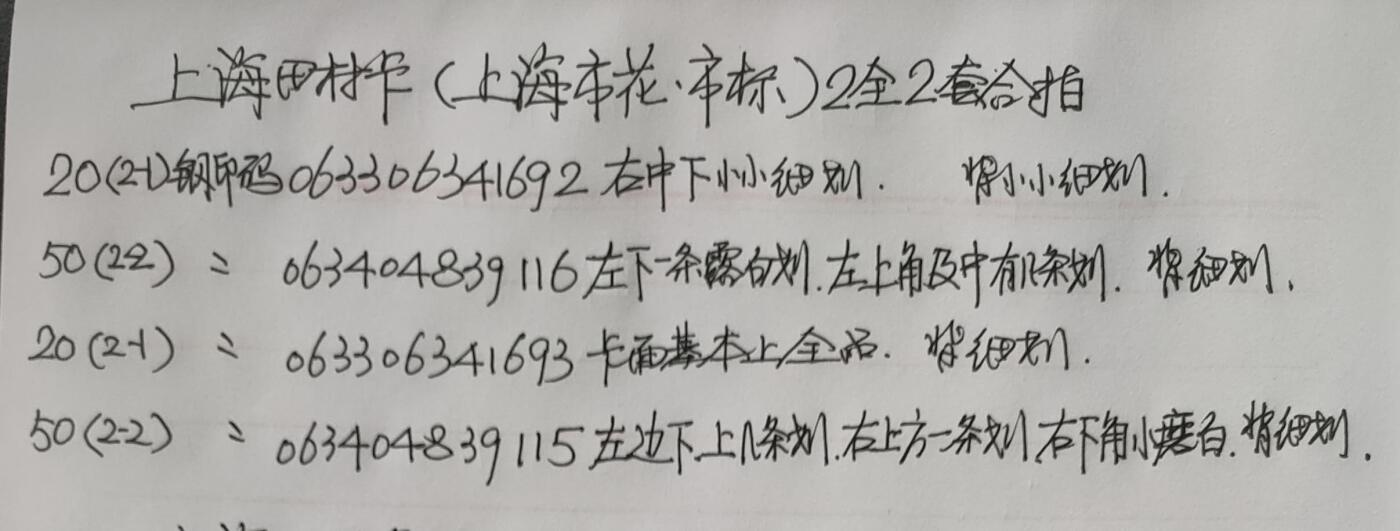 上海田村卡(上海市花·市标)2全2套合拍
20(2-1)钢印码063306341692右中下小小细划. 背小小细划.
50(2-2) 〃 063404839116左下一条露白划.左上角及中有几条划. 背细划.
20(2-1) 〃 063306341693卡面基本上全品. 背细划.
50(2-2) 〃 063404839115左边下.上几条划.右上方一条划.右下角小磨白.背细划.